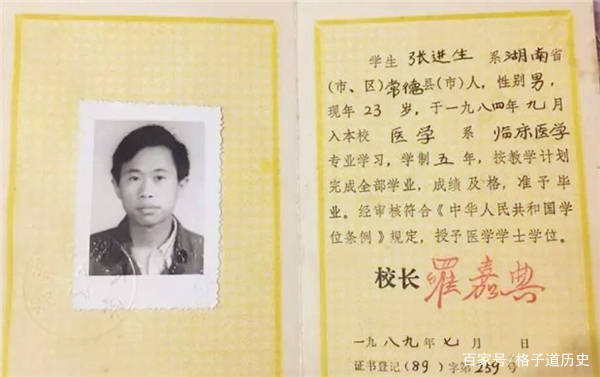 学生 张进生 系 湖南省
(市、区)常德县(市)人，性别男，
现年 23 岁，于一九八四年九月
入本校 医学 系 临床医学
专业学习，学制 五 年，按教学计划
完成全部学业，成绩及格，准予毕
业。经审核符合《中华人民共和国学
位条例》规定，授予医学学士学位。
校长 罗嘉典
一九八九年七月 日
证书登记(89)字第259号
百家号/格子道历史